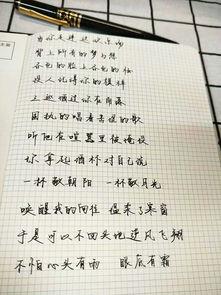 当你走进这欢乐场
背上所有的梦与想
各色的脸上各色的妆
没人记得你的模样
三巡酒过你在角落
固执的唱着苦涩的歌
听他在喧嚣里被淹没
你拿起酒杯对自己说
一杯敬朝阳 一杯敬月光
唤醒我的向往 温柔了寒窗
于是可以不回头地逆风飞翔
不怕心头有雨 眼底有霜